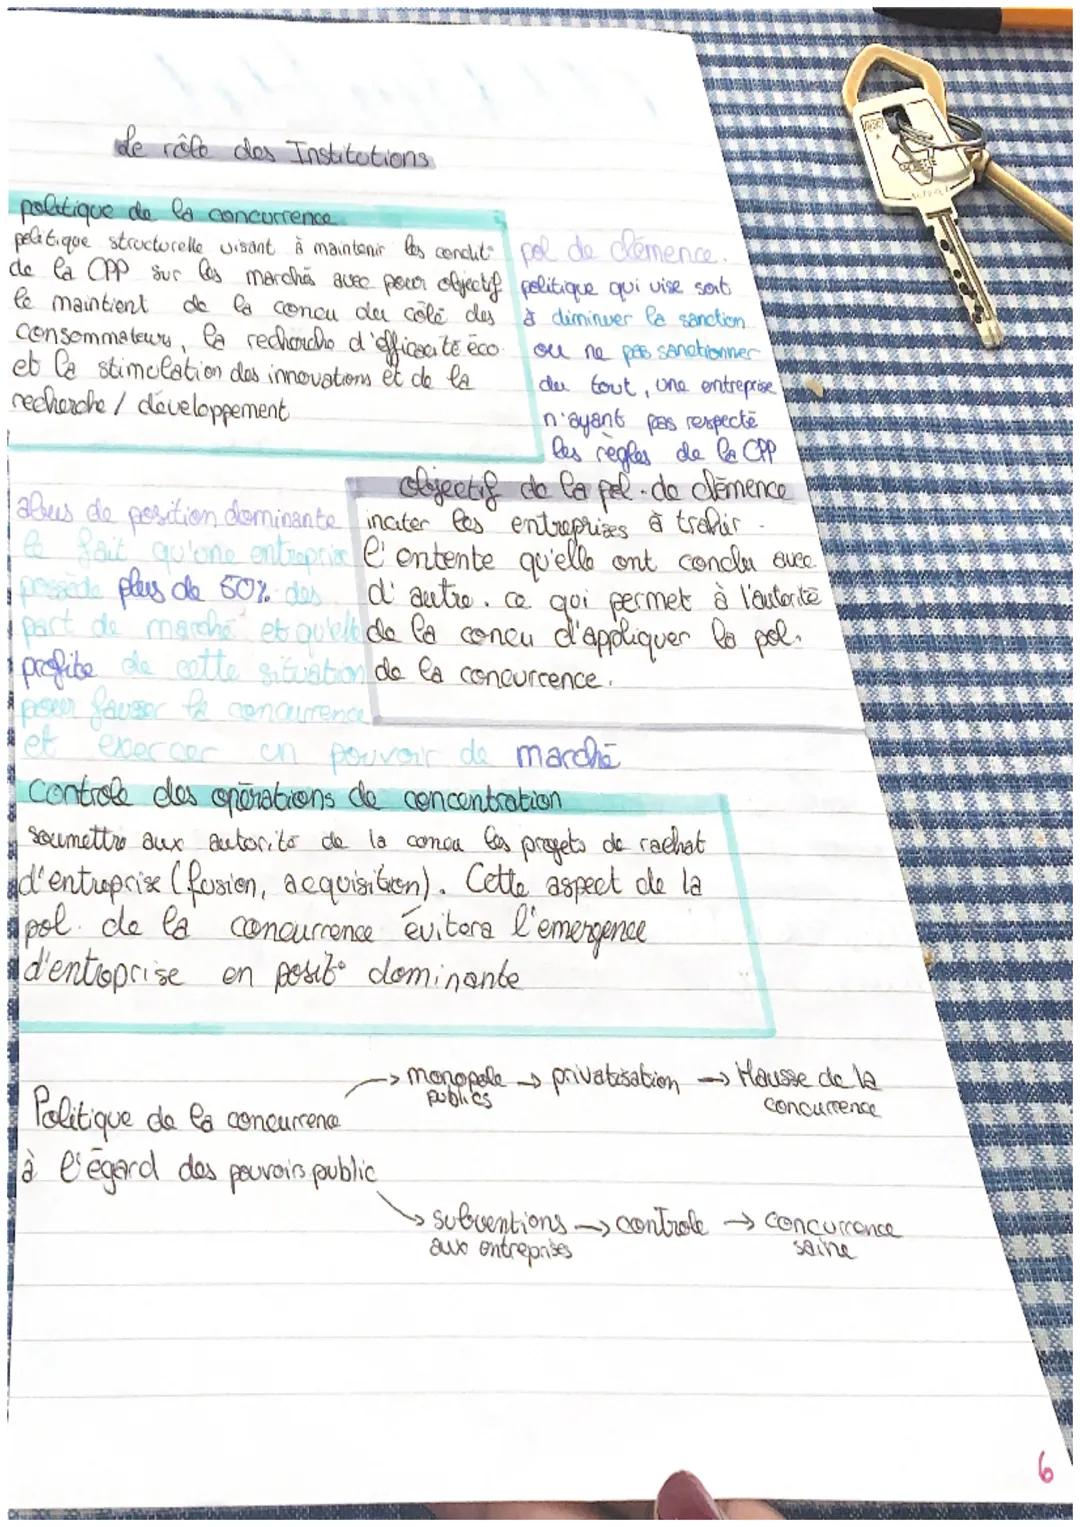 Le rôle des Institutions
politique de la concurrence
politique structurelle visant à maintenir les condit°
de la CPP sur les marchés avec pour objectif
le maintient de la concu du côté des
consommateurs, la recherche d'efficacité éco.
et la stimulation des innovations et de la
recherche / développement
pol de clémence.
politique qui vise soit
à diminuer la sanction
ou ne pas sanctionner
du tout, une entreprise
n'ayant pas respecté
les règles de la CPP
objectif de la pol. de clémence
inciter les entreprises à trahir
l'entente qu'elle ont conclu avec
d'autre. ce qui permet à l'autorité
de la concu d'appliquer la pol.
de la concurrence.
abus de position dominante
le fait qu'une entreprise
possède plus de 50% des
part de marché et qu'elle
profite de cette situation
pour fausser la concurrence
et exercer un pouvoir de marché
Controle des opérations de concentration
soumettre aux autorité de la concu les projets de rachat
d'entreprise (fusion, acquisition). Cette aspect de la
pol. de la concurrence évitera l'emergence
d'entreprise en posit° dominante
Politique de la concurrence
à l'égard des pouvoirs public
→ monopole → privatisation → Hausse de la
publics
concurrence
→ subventions → controle → concurrence
aux entreprises
saine
6